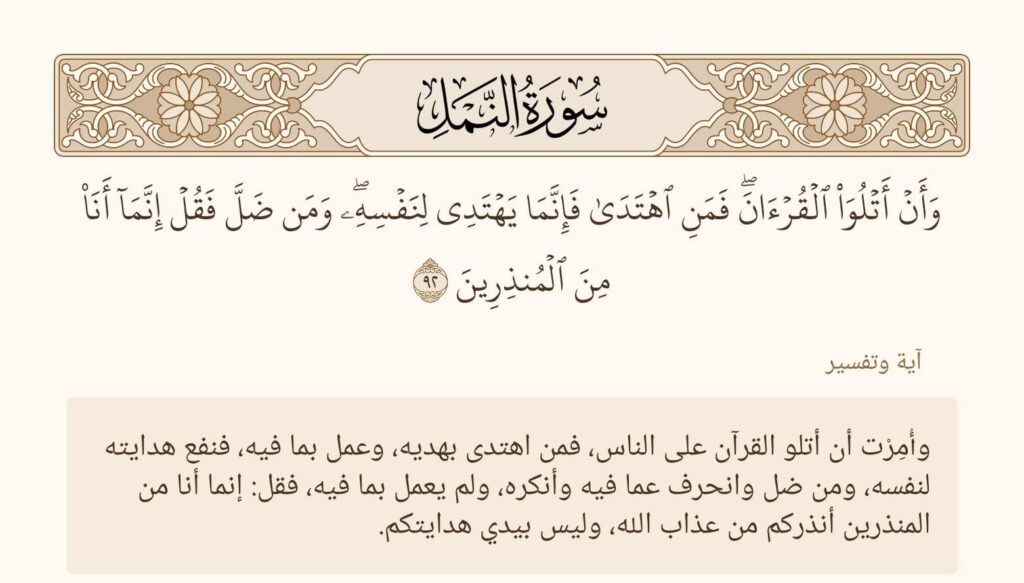 سُورَةُ النَّمۡلِ
وَأَنۡ أَتۡلُوَاْ ٱلۡقُرۡءَانَۖ فَمَنِ ٱهۡتَدَىٰ فَإِنَّمَا يَهۡتَدِي لِنَفۡسِهِۦۖ وَمَن ضَلَّ فَقُلۡ إِنَّمَآ أَنَا۠
مِنَ ٱلۡمُنذِرِينَ ٩٢
آية وتفسير
وأُمِرْت أن أتلو القرآن على الناس، فمن اهتدى بهديه، وعمل بما فيه، فنفع هدايته
لنفسه، ومن ضل وانحرف عما فيه وأنكره، ولم يعمل بما فيه، فقل: إنما أنا من
المنذرين أنذركم من عذاب الله، وليس بيدي هدايتكم.